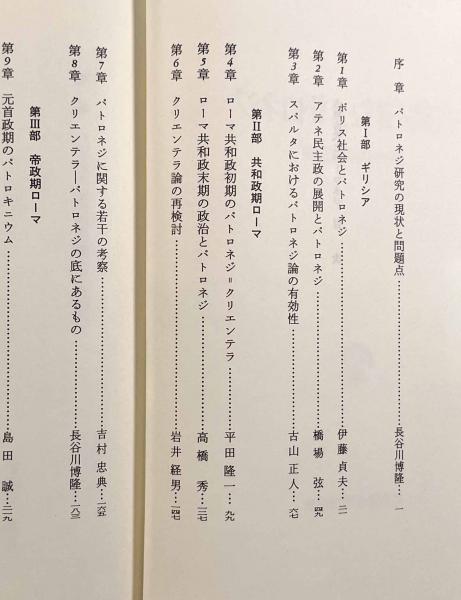 序 章 パトロネジ研究の現状と問題点……長谷川博隆… 一
第Ⅰ部 ギリシア
第1章 ポリス社会とパトロネジ……伊藤貞夫…二一
第2章 アテネ民主政の展開とパトロネジ……橋場 弦…四九
第3章 スパルタにおけるパトロネジ論の有効性……古山正人…六七
第Ⅱ部 共和政期ローマ
第4章 ローマ共和政初期のパトロネジ=クリエンテラ……平田隆一…九九
第5章 ローマ共和政末期の政治とパトロネジ……高橋 秀…一三七
第6章 クリエンテラ論の再検討……岩井経男…一四七
第7章 パトロネジに関する若干の考察……吉村忠典…一六五
第8章 クリエンテラ―パトロネジの底にあるもの……長谷川博隆…一八三
第Ⅲ部 帝政期ローマ
第9章 元首政期のパトロキニウム……島田 誠…二一九